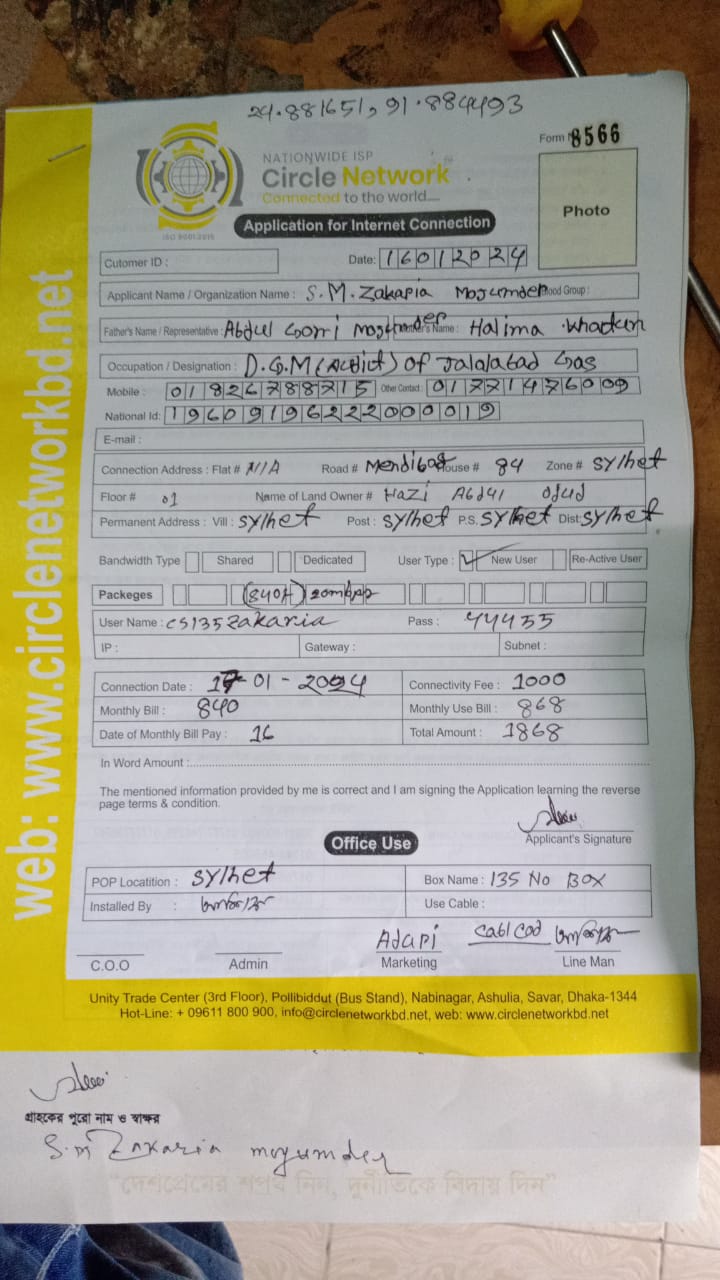 24.881651, 91.884493
Form No 8566
NATIONWIDE ISP
Circle Network
Connected to the world....
ISO 9001:2015
Application for Internet Connection
Photo
Cutomer ID :
Date: 16012024
Applicant Name / Organization Name : S.M. Zakaria Mojumder Blood Group :
Father's Name / Representative : Abdul Gorri Mojumder Mother's Name : Halima Khatun
Occupation / Designation : D.G.M (Audit) Of Jalalabad Gas
Mobile : 01826788715 Other Contact : 01771476009
National Id: 19609196222000019
E-mail :
Connection Address : Flat # N/A Road # Mendibag House # 84 Zone # Sylhet
Floor # 01 Name of Land Owner # Hazi Abdul
Permanent Address : Vill : Sylhet Post : Sylhet P.S. Sylhet Dist: Sylhet
Bandwidth Type Shared Dedicated User Type : New User Re-Active User
Packeges (840৳) 20mbps
User Name : CS135Zakaria Pass : 44455
IP : Gateway : Subnet :
Connection Date : 17-01-2024 Connectivity Fee : 1000
Monthly Bill : 840 Monthly Use Bill : 868
Date of Monthly Bill Pay : 16 Total Amount : 1868
In Word Amount :
The mentioned information provided by me is correct and I am signing the Application learning the reverse
page terms & condition.
Applicant's Signature
Office Use
POP Locatition : Sylhet Box Name : 135 No Box
Installed By : Use Cable :
C.O.O Admin Marketing Line Man
Unity Trade Center (3rd Floor), Pollibiddut (Bus Stand), Nabinagar, Ashulia, Savar, Dhaka-1344
Hot-Line: + 09611 800 900, info@circlenetworkbd.net, web: www.circlenetworkbd.net
web: www.circlenetworkbd.net
গ্রাহকের পুরো নাম ও স্বাক্ষর
S.M Zakaria mojumder
"দেশপ্রেমের শপথ নিন, দুর্নীতিকে বিদায় দিন"